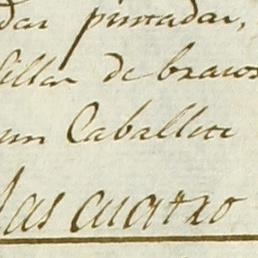 dar pintadar,
sillar de brazos
un Caballete
las cuatro